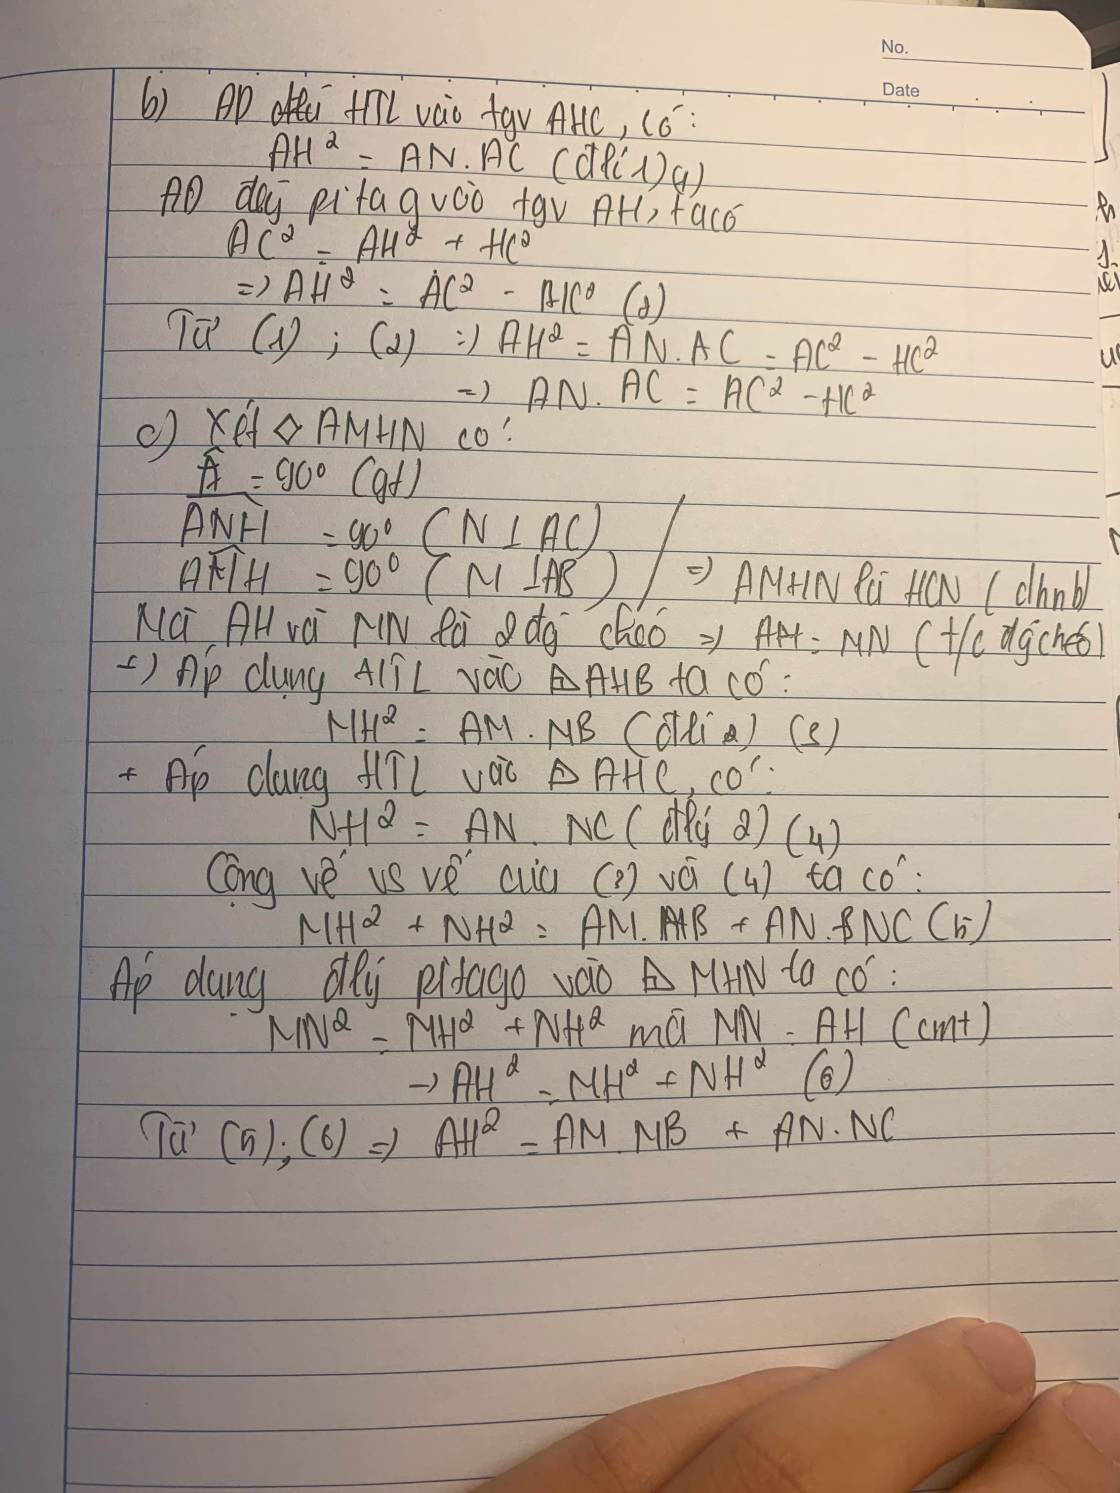 No.
Date
b) AD đlí HTL vào tgv AHC, có:
AH² = AN.AC (đlí 1) (1)
AD đlý pitag vào tgv AH, ta có
AC² = AH² + HC²
=> AH² = AC² - HC² (2)
Từ (1) ; (2) => AH² = AN.AC = AC² - HC²
=> AN.AC = AC² - HC²
c) Xét ◇ AMHN có:
Â = 90° (gt)
ANH = 90° (N ⊥ AC)
AMH = 90° (M ⊥ AB) => AMHN là HCN (dhnb)
Mà AH và MN là 2 đg chéo => AH = MN (t/c đg chéo)
+) Áp dụng HTL vào △ AHB ta có:
MH² = AM.MB (đlí 2) (3)
+ Áp dụng HTL vào △ AHC, có:
NH² = AN.NC (đlý 2) (4)
Cộng vế vs vế của (3) và (4) ta có:
MH² + NH² = AM.MB + AN.NC (5)
Áp dụng đlý pitago vào △ MHN ta có:
MN² = MH² + NH² mà MN = AH (cmt)
-> AH² = MH² + NH² (6)
Từ (5); (6) => AH² = AM.MB + AN.NC